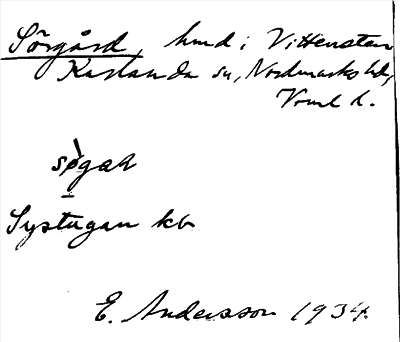 Sörgård, hmd i Vittensten
Karlanda sn, Nordmarks hd,
Vrml l.
søgaɹ
Systugan kb
E. Andersson 1934.